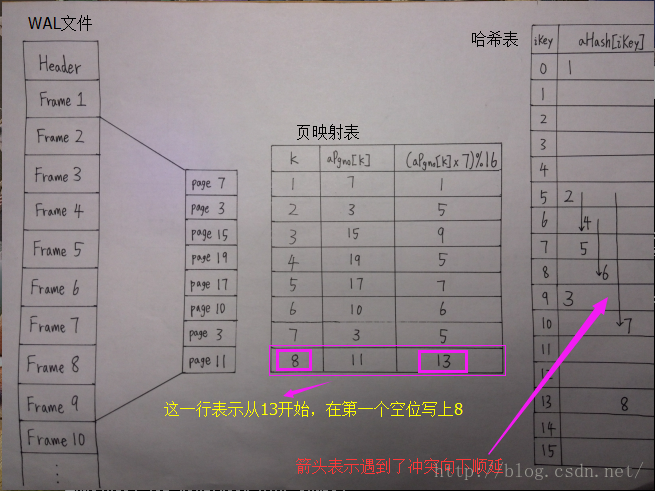 WAL文件
Header
Frame 1
Frame 2
Frame 3
Frame 4
Frame 5
Frame 6
Frame 7
Frame 8
Frame 9
Frame 10
⋮
page 7
page 3
page 15
page 19
page 17
page 10
page 3
page 11
页映射表
k aPgno[k] (aPgno[k]x7)%16
1 7 1
2 3 5
3 15 9
4 19 5
5 17 7
6 10 6
7 3 5
8 11 13
这一行表示从13开始，在第一个空位写上8
哈希表
iKey aHash[iKey]
0 1
1
2
3
4
5 2
6 4
7 5
8 6
9 3
10 7
11
12
13 8
14
15
箭头表示遇到了冲突向下顺延
http://blog.csdn.net/